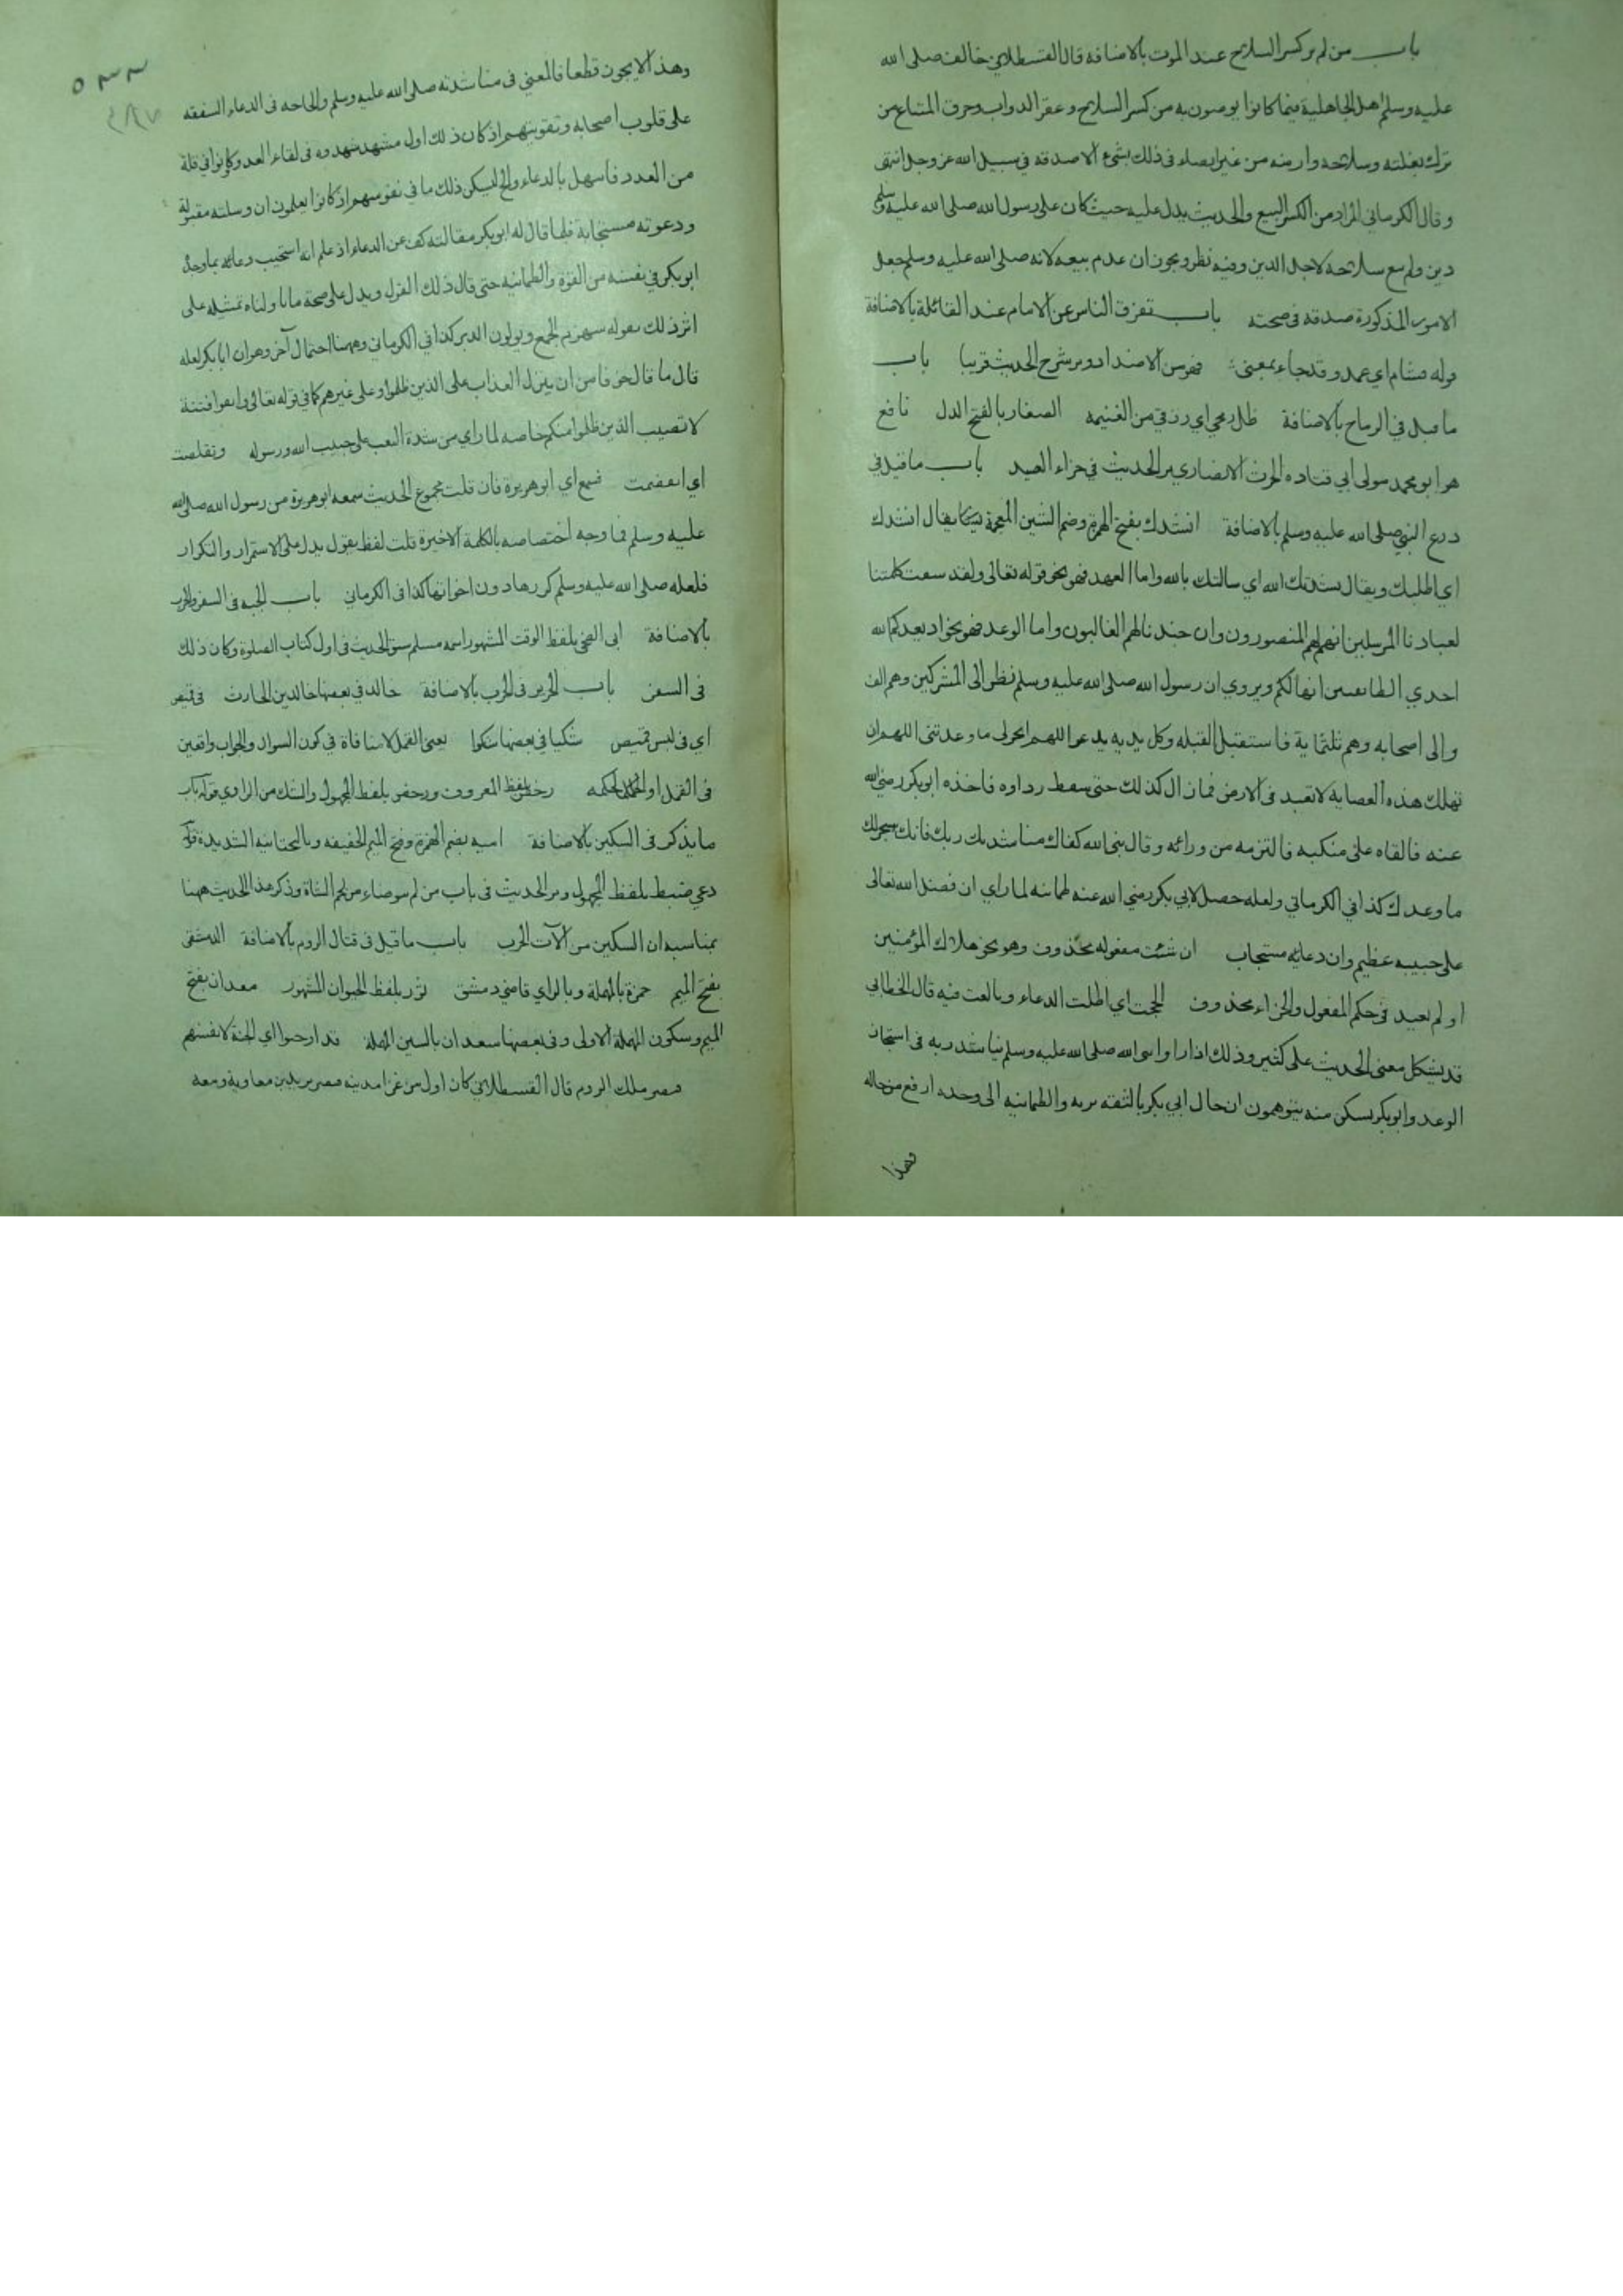 باب من لم ير كسر السلاح عند الموت بالاضافة قال القسطلاني خالف صلى الله
عليه وسلم اهل الجاهلية فيما كانوا يوصون به من كسر السلاح وعقر الدواب وحرق المتاع من
ترك بغلته وسلاحه وارضه من غير ايصاء في ذلك بشيء الا صدقة في سبيل الله عز وجل انتهى
وقال الكرماني المراد من الكسر البيع والحديث يدل عليه حيث كان على رسول الله صلى الله عليه وسلم
دين ولم يبع سلاحه لاجل الدين وفيه نظر ويجوز ان عدم بيعه لانه صلى الله عليه وسلم جعل
الامور المذكورة صدقة في صحته باب تفرق الناس عن الامام عند القائلة بالاضافة
قوله فشام اي عمد وقد جاء بمعنى فهو من الاضداد ومر شرح الحديث قريبا باب
ما قيل في الرماح بالاضافة ظل رمحي اي رزقي من الغنيمة الصغار بالفتح الذل نافع
هو ابو محمد مولى ابي قتادة الحرث الانصاري مر الحديث في جزاء الصيد باب ما قيل في
درع النبي صلى الله عليه وسلم بالاضافة انشدك بفتح الهمزة وضم الشين المعجمة يقال انشدك
اي اطلبك ويقال نشدتك الله اي سالتك بالله واما العهد فهو نحو قوله تعالى ولقد سبقت كلمتنا
لعبادنا المرسلين انهم لهم المنصورون وان جندنا لهم الغالبون واما الوعد فهو نحو اذ يعدكم الله
احدي الطائفتين انها لكم ويروي ان رسول الله صلى الله عليه وسلم نظر الى المشركين وهم الف
والى اصحابه وهم ثلثماية فاستقبل القبلة وكل يديه يدعو اللهم انجز لي ما وعدتني اللهم ان
تهلك هذه العصابة لا تعبد في الارض فما زال كذلك حتى سقط رداوه فاخذه ابو بكر رضي الله
عنه فالقاه على منكبه فالتزمه من ورائه وقال نبي الله كفاك مناشدتك ربك فانه سينجز لك
ما وعدك كذا في الكرماني ولعله حصل لابي بكر رضي الله عنه طمانينه لما راي ان فضل الله تعالى
على حبيبه عظيم وان دعائه مستجاب ان شئت مفعوله محذوف وهو نحو هلاك المؤمنين
او لم تعبد في حكم المفعول والجزاء محذوف الححت اي اطلت الدعاء وبالغت فيه قال الخطابي
قد يشكل معنى الحديث على كثير وذلك اذا راوا نبي الله صلى الله عليه وسلم يناشد ربه في استنجاز
الوعد وابو بكر يسكن منه يتوهمون ان حال ابي بكر بالثقة بربه والطمانينه الى وعده ارفع من حاله
وهذا
٥٣٣
وهذا لا يجوز قطعا فالمعني في مناشدته صلى الله عليه وسلم والحاحه في الدعاء الشفقة
على قلوب اصحابه وتقويتهم اذ كان ذلك اول مشهد شهدوه في لقاء العدو وكانوا في قلة
من العدد فابتهل بالدعاء والح ليسكن ذلك ما في نفوسهم اذ كانوا يعلمون ان وسيلته مقبولة
ودعوته مستجابة فلما قال له ابو بكر مقالته كف عن الدعاء اذ علم انه استجيب دعائه بما وجد
ابو بكر في نفسه من القوة والطمانينه حتى قال ذلك القول ويدل على صحة ما تاولناه تمثيله على
اثر ذلك بقوله سيهزم الجمع ويولون الدبر كذا في الكرماني وههنا احتمال آخر وهو ان ابا بكر لعله
قال ما قال خوفا من ان ينزل العذاب على الذين ظلموا وعلى غيرهم كما في قوله تعالى واتقوا فتنة
لا تصيبن الذين ظلموا منكم خاصه لما راي من شدة التعب على حبيب الله ورسوله وتقلصت
اي انقبضت فسمع اي ابو هريرة فان قلت مجموع الحديث سمعه ابو هريرة من رسول الله صلى الله
عليه وسلم فما وجه اختصاصه بالكلمة الاخيرة قلت لفظ يقول يدل على الاستمرار والتكرار
فلعله صلى الله عليه وسلم كررها دون اخواتها كذا في الكرماني باب الجبه في السفر والحرب
بالاضافة ابي الضحى بلفظ الوقت المشهور اسمه مسلم سبق الحديث في اول كتاب الصلوة وكان ذلك
في السفر باب الحرير في الحرب بالاضافة خالد في بعضها خالد بن الحارث في قميص
اي في لبس قميص شكيا في بعضها شكوا يعني القمل لا منافاة في كون السوال والجواب واقعين
في القمل او الحكة رخص بلفظ المعروف ورخص بلفظ المجهول والشك من الراوي قوله باب
ما يذكر في السكين بالاضافة امية بضم الهمزة وفتح الميم الخفيفه وبالتحتانيه الشديدة قوله
دعي ضبط بلفظ المجهول ومر الحديث في باب من لم يتوضاء من لحم الشاة وذكر هذا الحديث ههنا
بمناسبة ان السكين من آلات الحرب باب ما قيل في قتال الروم بالاضافة الدمشقي
بفتح الميم حمزة بالمهملة وبالزاي قاضي دمشق ثور بلفظ الحيوان المشهور معدان بفتح
الميم وسكون المهملة الاولى وفي بعضها سعدان بالسين المهملة قد اوجبوا اي الجنة لانفسهم
قيصر ملك الروم قال القسطلاني كان اول من غزا مدينه قيصر يزيد بن معاوية ومعه